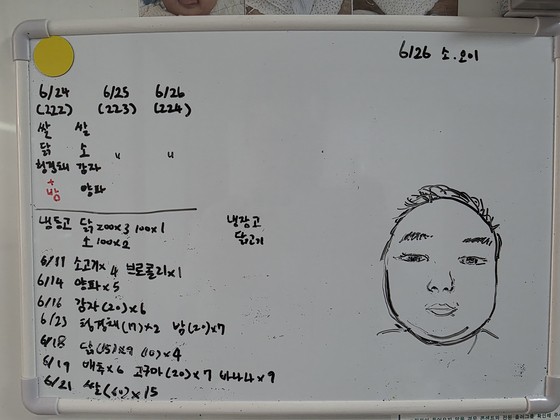 6/26 소.오이
6/24 6/25 6/26
(222) (223) (224)
쌀 쌀
닭 소 " "
청경채 감자
+
밤 양파
냉동고 닭 200x3 100x1
소 100x2
냉장고
닭고기
6/11 소고기x4 브로콜리x1
6/14 양파x5
6/16 감자(20)x6
6/23 청경채(17)x2 밤(20)x7
6/18 닭(15)x9 (10)x4
6/19 배죽x6 고구마(20)x7 바나나x9
6/21 쌀(60)x15